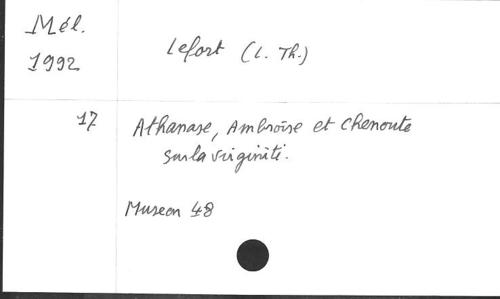 Mél.
1992
Lefort (L. Th.)
17
Athanase, Ambroise et Chenoute
sur la virginité.
Museon 48